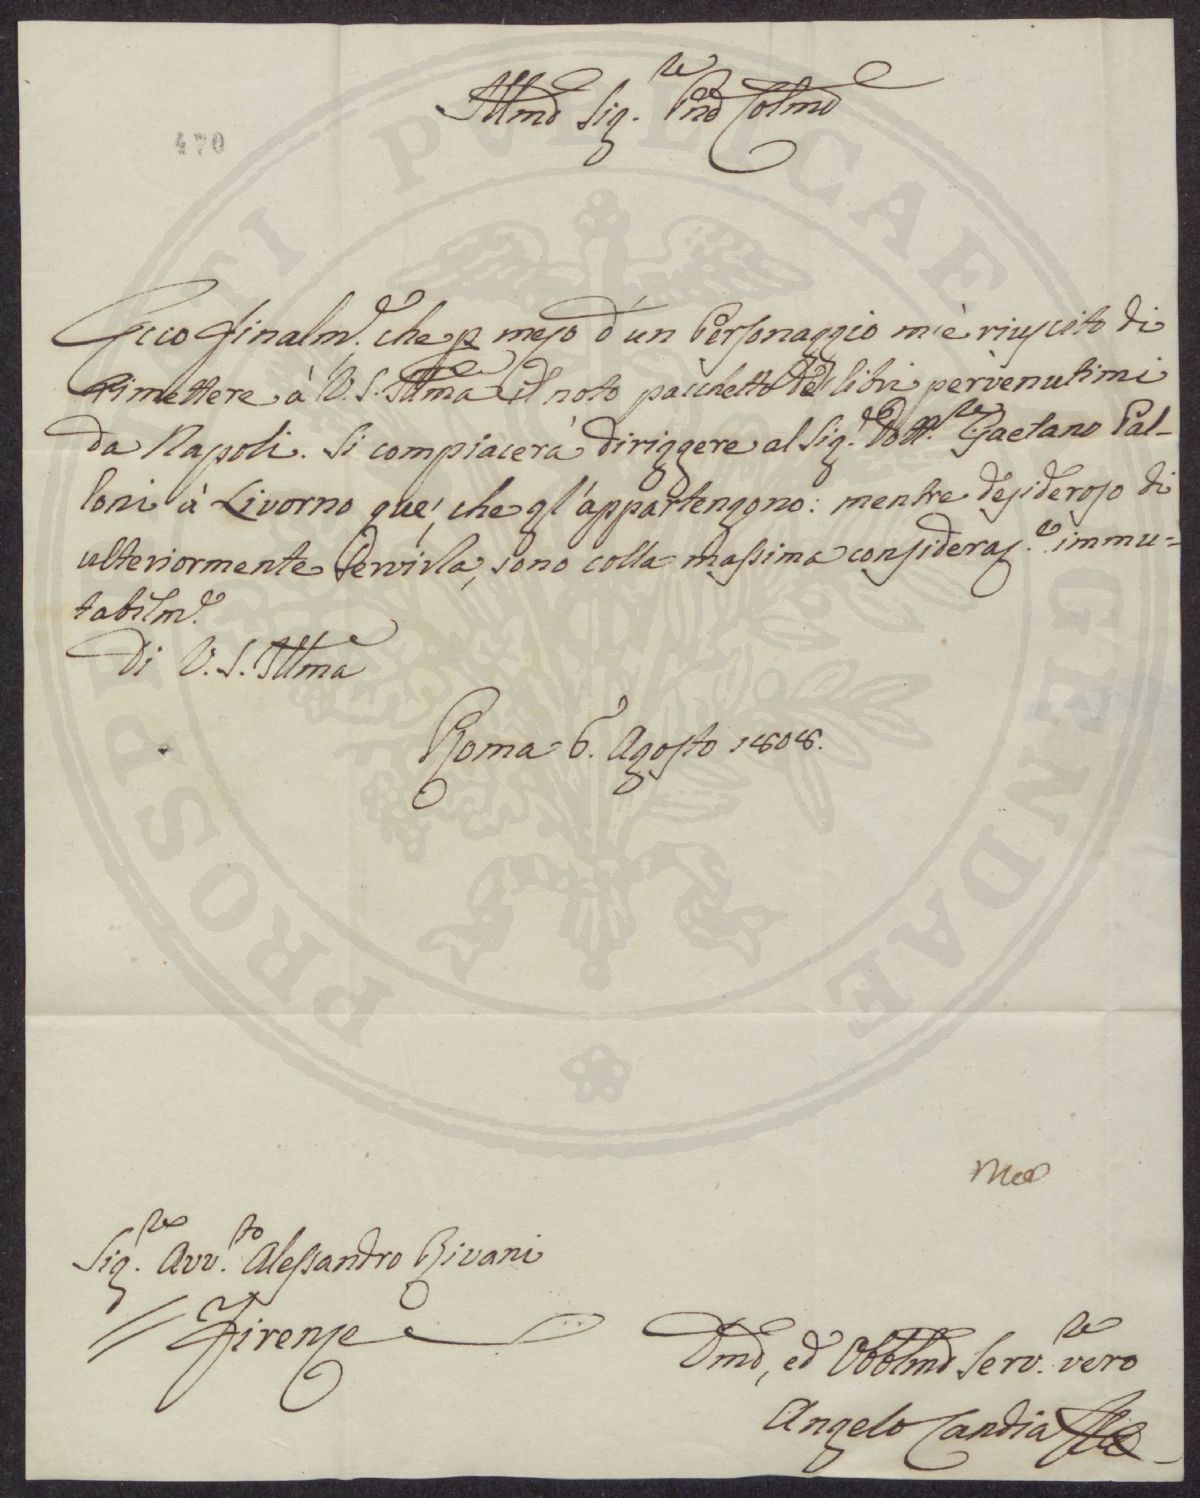 470
Illmo Sig.re Pne Colmo
Ecco finalm.e che p mezo d'un Personaggio m'è riuscito di
rimettere à V.S. Illma il noto pacchetto de libri pervenutimi
da Napoli. Si compiacerà diriggere al Sig.e Dott.re Gaetano Pal-
loni à Livorno que', che gl'appartengono: mentre desideroso di
ulteriormente servirla, sono colla massima consideraz.e immu=
tabilm.e
Di V.S. Illma
Roma 6. Agosto 1808.
Sig.re Avv.to Alessandro Rivani
Firenze
Dmo, ed Obblmo Serv.re vero
Angelo Candia
PROSPERITATI PUBLICAE AUGENDAE